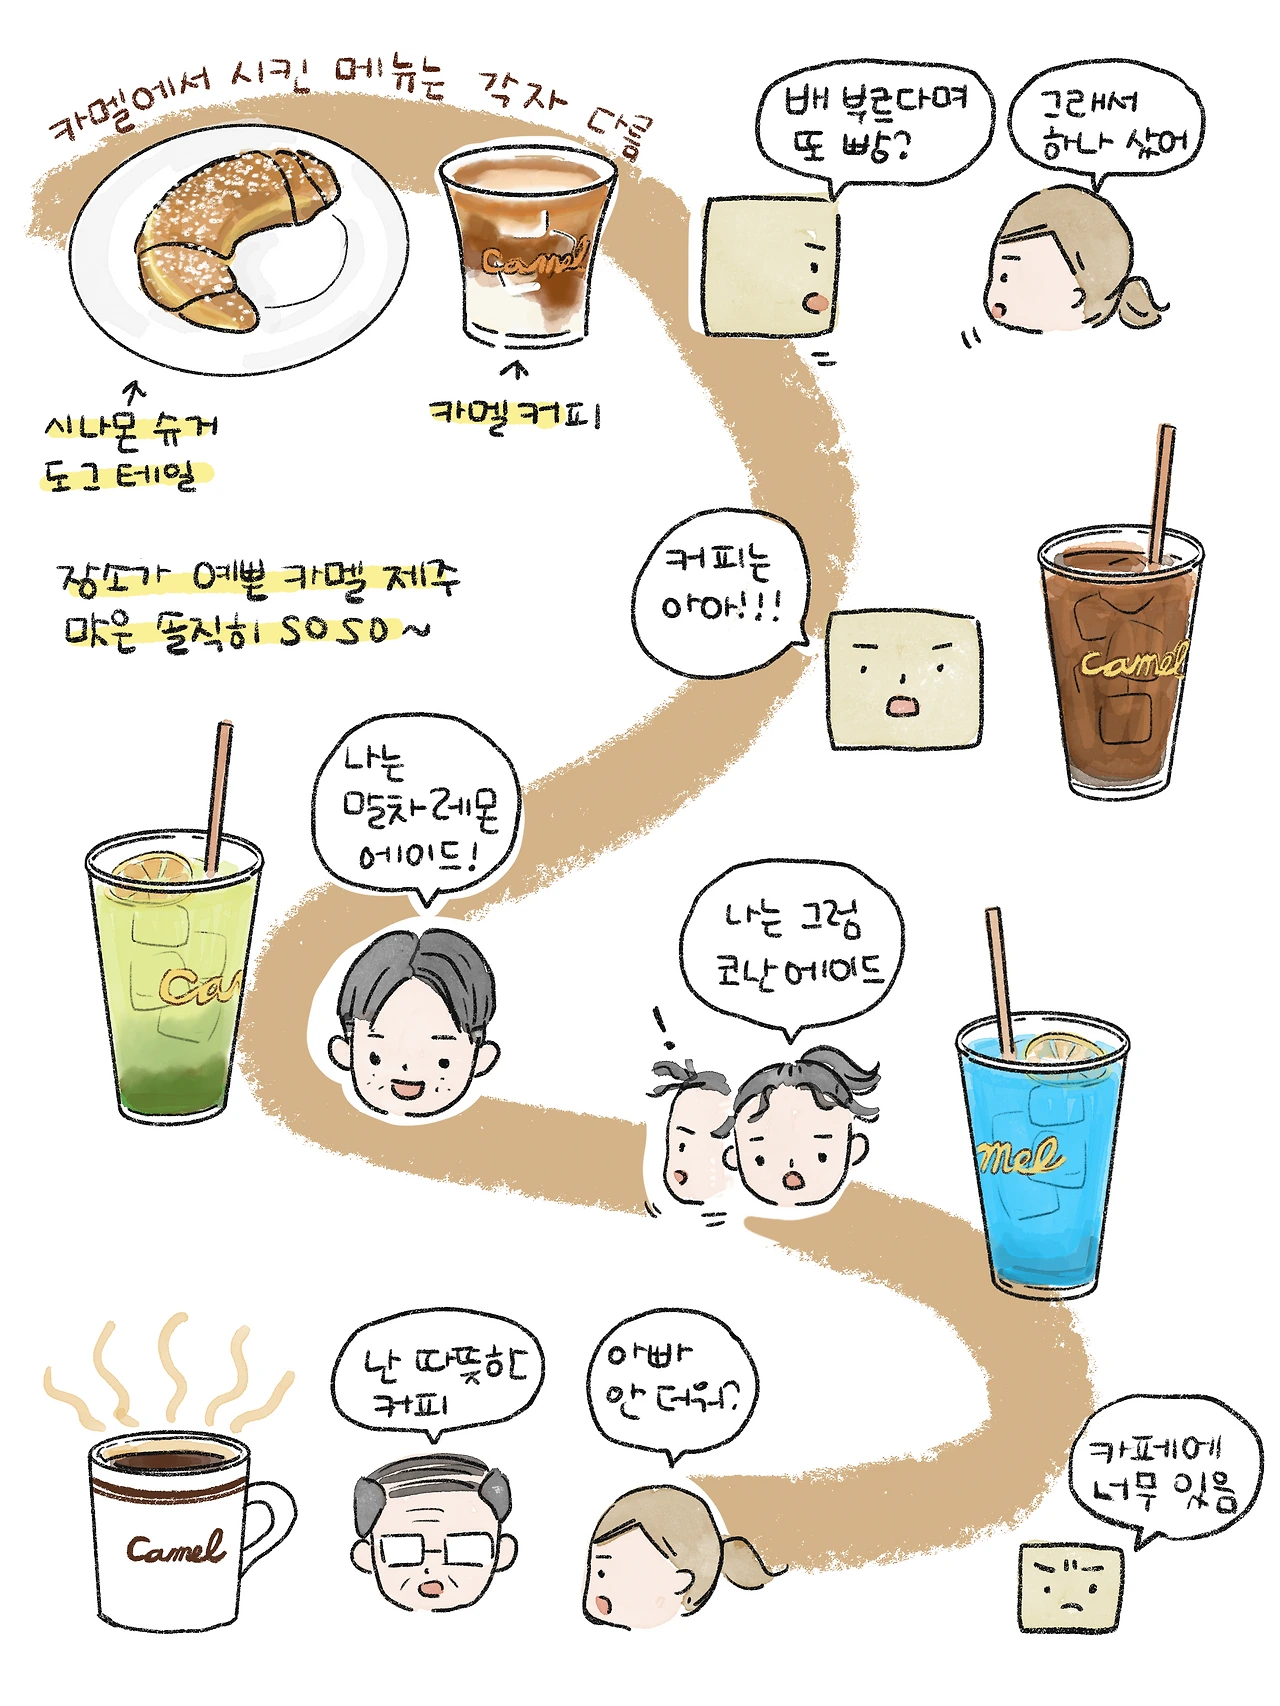 카멜에서 시킨 메뉴는 각자 다름
배 부르다며
또 빵?
그래서
하나 샀어
Camel
시나몬 슈거
도그 테일
카멜커피
장소가 예쁜 카멜 제주
맛은 솔직히 SOSO~
커피는
아아!!!
camel
나는
말차레몬
에이드!
Cam
나는 그럼
코난에이드
!
mel
난 따뜻한
커피
아빠
안 더워?
Camel
카페에
너무 있음